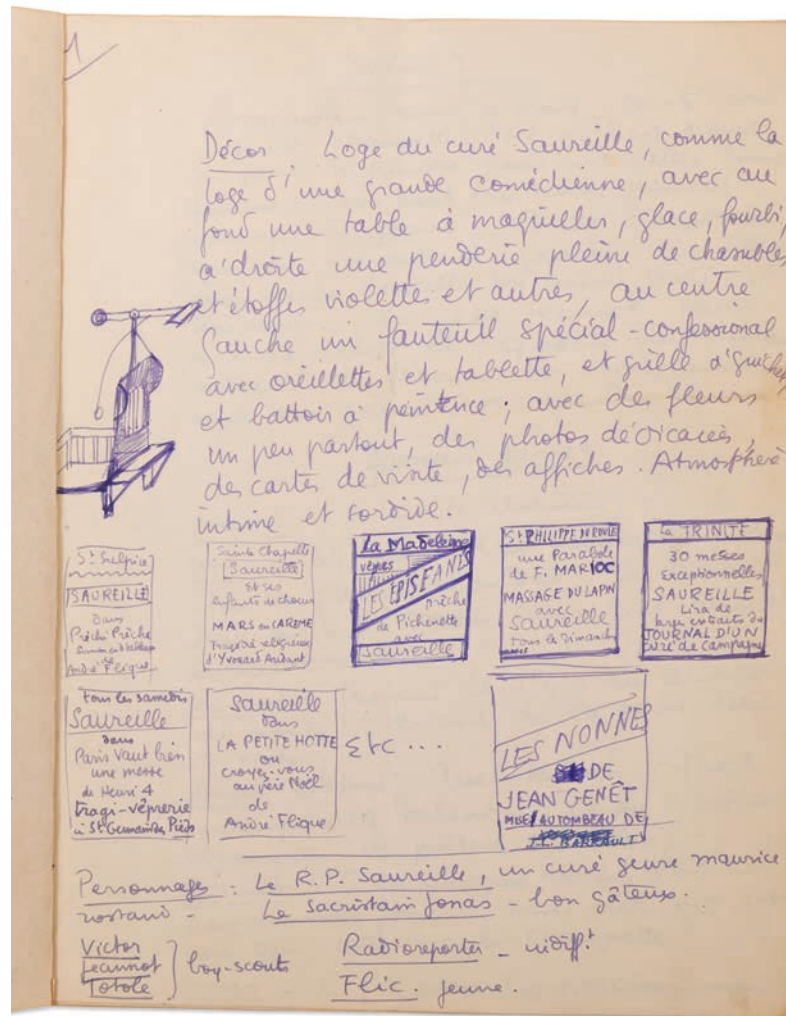 1
Décor. Loge du curé Saureille, comme la
loge d'une grande comédienne, avec au
fond une table à maquiller, glace, fourbi,
a'droite une penderie pleine de chasubles
et étoffes violettes et autres, au centre
gauche un fauteuil spécial-confessional
avec oreillettes et tablette, et grille d'guichet,
et battoir à penitence ; avec des fleurs
un peu partout, des photos dédicacées,
des cartes de visite, des affiches. Atmosphère
intime et sordide.
St Sulpice
SAUREILLE
dans
Prêchi Prêcha
André Flique
Sainte Chapelle
Saureille
et ses
enfants de choeur
MARS ou CAREME
tragédie religieuse
d'Yvonard Audant
La Madeleine
vêpres
LES EPISFANES
prêche
de Pichenette
avec
Saureille
St PHILIPPE DU ROULE
une Parabole
de F. MARIOC
MASSAGE DU LAPIN
avec
Saureille
tous les Dimanches
La TRINITE
30 messes
Exceptionnelles
SAUREILLE
Lira de
larges extraits du
JOURNAL D'UN
curé de campagne
tous les samedis
Saureille
dans
Paris Vaut bien
une messe
de Henri 4
tragi-vêprerie
à St Germain des Pieds
Saureille
dans
LA PETITE HOTTE
ou
croyez-vous
au père Noël
de
André Flique
Etc ...
LES NONNES
DE
JEAN GENÊT
MISE AU TOMBEAU DE
J.L. BARRAULT
Personnages : Le R.P. Saureille, un curé genre maurice
rostand - Le Sacristain Jonas - bon gâteux.
Victor
Jeannot
Totole
boy-scouts
Radioreporter - indiff.t
Flic. jeune.